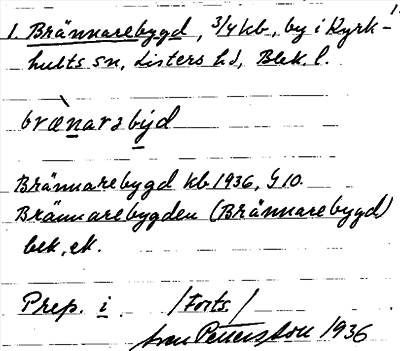 1.
1. Brännarebygd, 3/4 kb., by i Kyrk-
hults sn, Listers hd, Blek. l.
brænarabýd
Brännarebygd kb 1936, G 10.
Brännarebygden (Brännarebygd)
bek, ek.
Prep. i /Forts./
Pettersson 1936